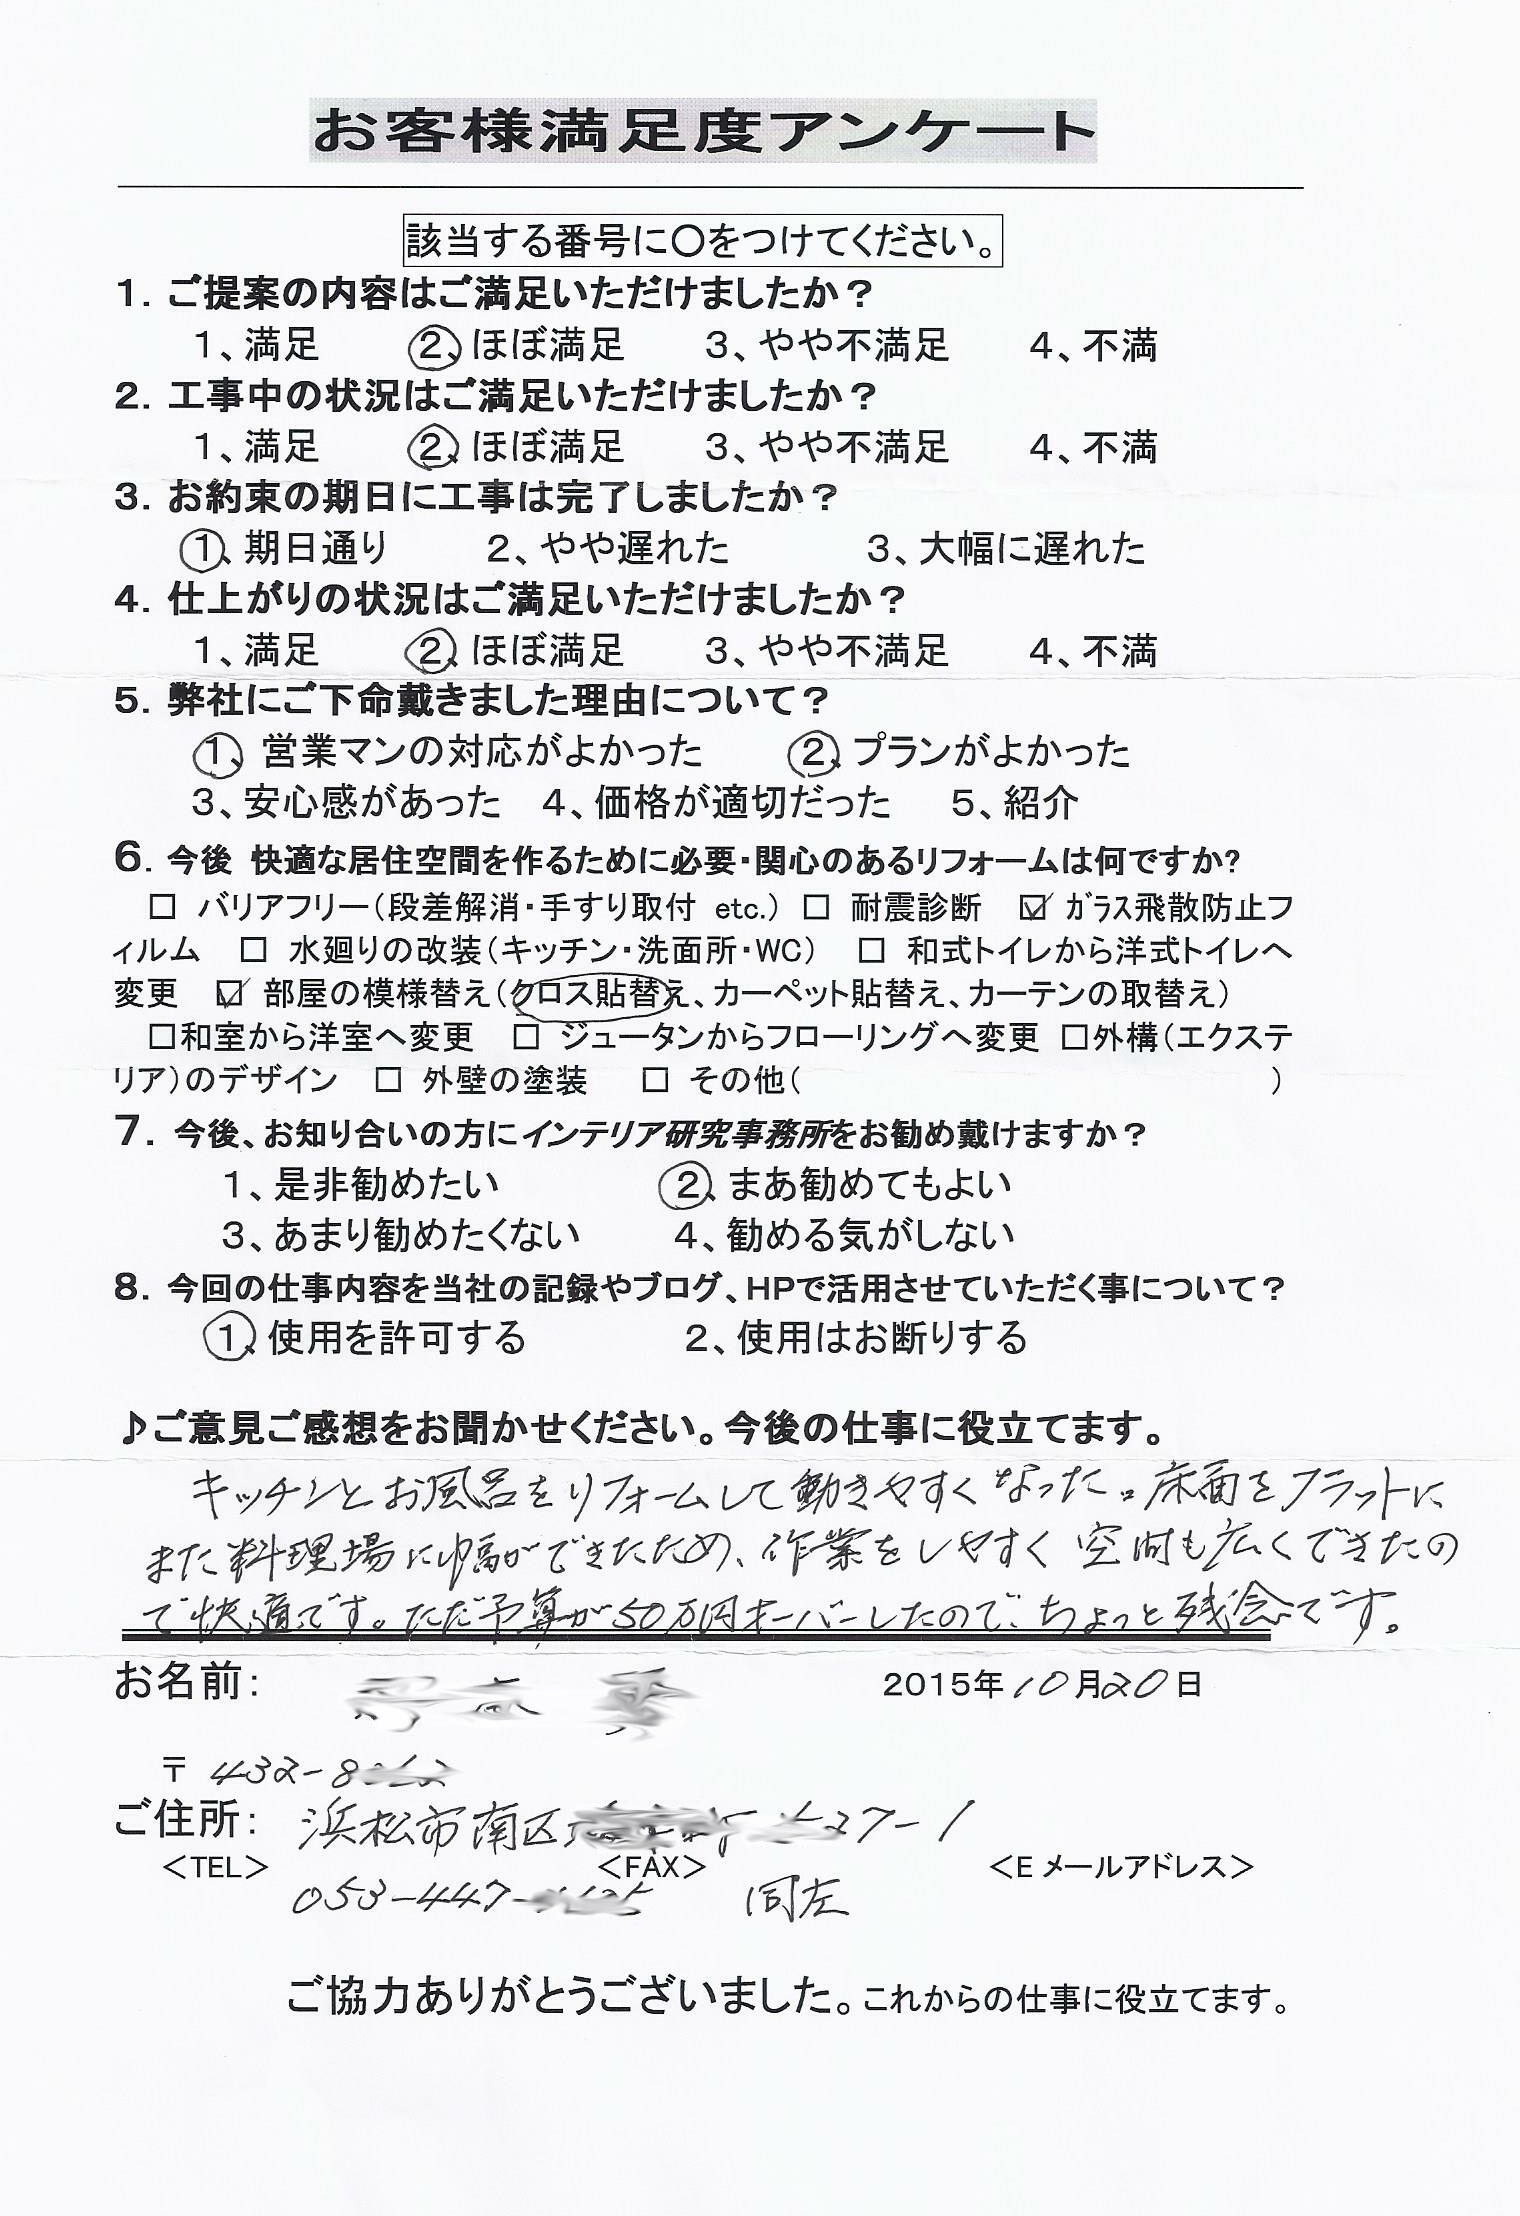 お客様満足度アンケート
該当する番号に○をつけてください。
1. ご提案の内容はご満足いただけましたか?
1、満足 2、ほぼ満足 3、やや不満足 4、不満
2. 工事中の状況はご満足いただけましたか?
1、満足 2、ほぼ満足 3、やや不満足 4、不満
3. お約束の期日に工事は完了しましたか?
1、期日通り 2、やや遅れた 3、大幅に遅れた
4. 仕上がりの状況はご満足いただけましたか?
1、満足 2、ほぼ満足 3、やや不満足 4、不満
5. 弊社にご下命戴きました理由について?
1、営業マンの対応がよかった 2、プランがよかった
3、安心感があった 4、価格が適切だった 5、紹介
6. 今後 快適な居住空間を作るために必要・関心のあるリフォームは何ですか?
□ バリアフリー(段差解消・手すり取付 etc.) □ 耐震診断 ☑ ガラス飛散防止フ
ィルム □ 水廻りの改装(キッチン・洗面所・WC) □ 和式トイレから洋式トイレへ
変更 ☑ 部屋の模様替え(クロス貼替え、カーペット貼替え、カーテンの取替え)
□和室から洋室へ変更 □ ジュータンからフローリングへ変更 □外構(エクステ
リア)のデザイン □ 外壁の塗装 □ その他( )
7. 今後、お知り合いの方にインテリア研究事務所をお勧め戴けますか?
1、是非勧めたい 2、まあ勧めてもよい
3、あまり勧めたくない 4、勧める気がしない
8. 今回の仕事内容を当社の記録やブログ、HPで活用させていただく事について?
1、使用を許可する 2、使用はお断りする
♪ご意見ご感想をお聞かせください。今後の仕事に役立てます。
キッチンとお風呂をリフォームして動きやすくなった。床面をフラットに
また料理場に幅ができたため、作業をしやすく空間も広くできたの
で快適です。ただ予算が50万円オーバーしたので、ちょっと残念です。
お名前: 2015年10月20日
〒 432-8
ご住所: 浜松市南区 27-1
<TEL> <FAX> <Eメールアドレス>
053-447- 同左
ご協力ありがとうございました。これからの仕事に役立てます。